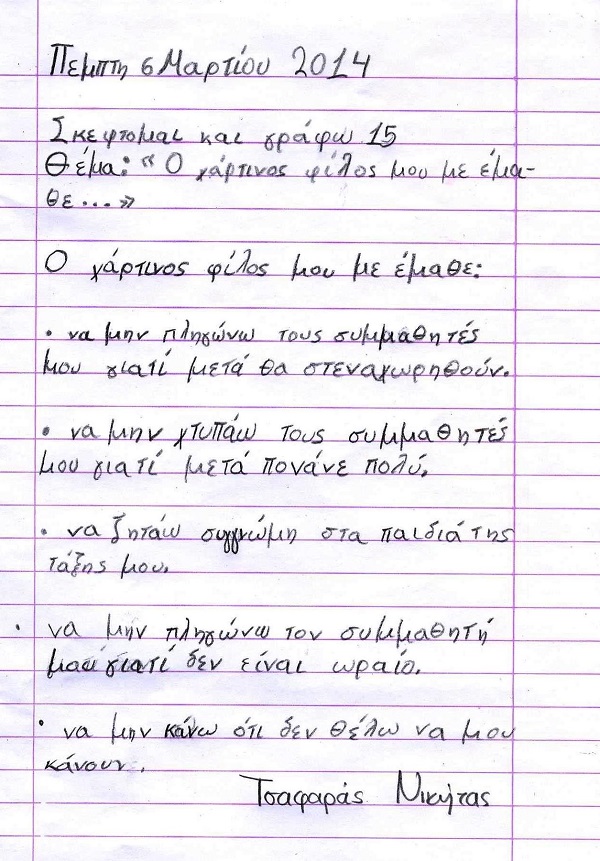 Πεμπτη 6 Μαρτίου 2014
Σκεφτομαι και γράφω 15
Θέμα: «Ο χάρτινος φίλος μου με έμα-
θε...»
Ο χάρτινος φίλος μου με έμαθε:
• να μην πληγώνω τους συμμαθητές
μου γιατί μετά θα στεναχωρηθούν.
• να μην χτυπάω τους συμμαθητές
μου γιατί μετά πονάνε πολύ.
• να ζητάω συγγνώμη στα παιδιά της
τάξης μου.
• να μην πληγώνω τον συμμαθητή
μας γιατί δεν είναι ωραίο.
• να μην κάνω ότι δεν θέλω να μου
κάνουν.
Τσαφαράς Νικήτας